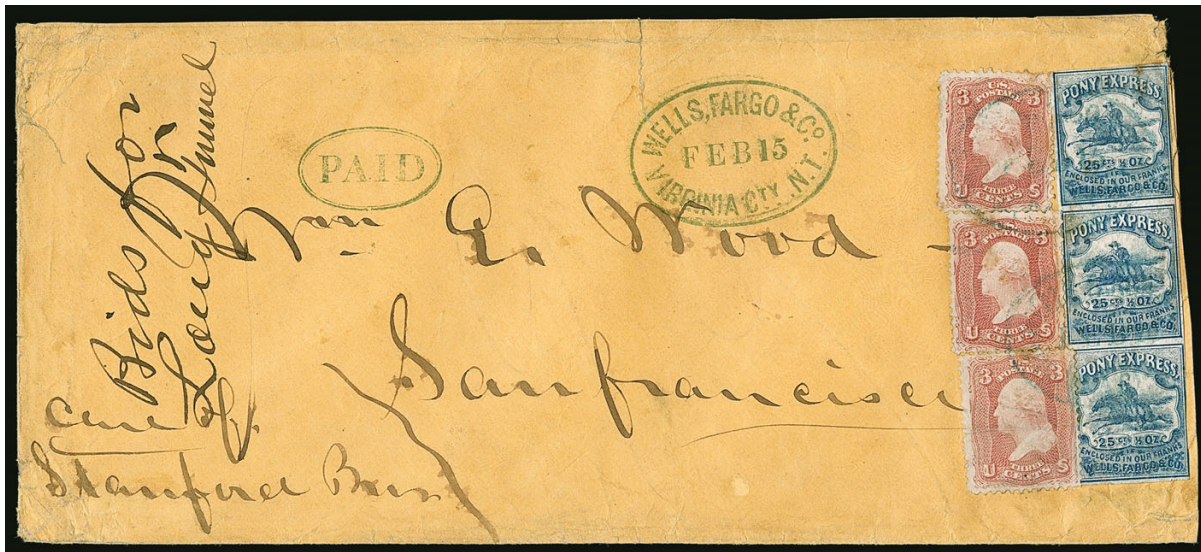 Bids for
Long Tunnel
PAID
WELLS, FARGO & Co.
FEB 15
VIRGINIA CTY. N.T.
Wm E. Wood
San francisco
Care of
Stanford Bros
U.S. POSTAGE
3 3
U THREE CENTS S
U.S. POSTAGE
3 3
U THREE CENTS S
U.S. POSTAGE
3 3
U THREE CENTS S
PONY EXPRESS
25 CTS ½ OZ.
ENCLOSED IN OUR FRANKS
WELLS, FARGO & CO.
PONY EXPRESS
25 CTS ½ OZ.
ENCLOSED IN OUR FRANKS
WELLS, FARGO & CO.
PONY EXPRESS
25 CTS ½ OZ.
ENCLOSED IN OUR FRANKS
WELLS, FARGO & CO.